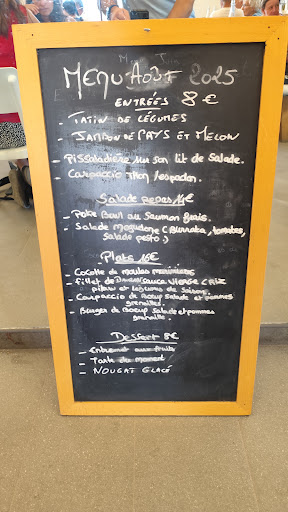 MENU AOÛT 2025
ENTRÉES 8 €
- TATIN DE LÉGUMES
- JAMBON DE PAYS ET MELON
- PISSALADIÈRE sur son lit de salade.
- CARPACCIO THON / espadon.
Salade repas 14€
- Poke Bowl au Saumon frais.
- Salade (Burrata, tomates,
salade pesto.)
Plats 16€
- COCOTTE de moules
- Fillet de SAUCE VIERGE &
et légumes de saison.
- Carpaccio de Boeuf Salade et pommes
grenailles.
- Burger de Boeuf Salade et pommes
grenaille.
Dessert 8€
- Entremet aux fruits
- Tarte du moment
- NOUGAT GLACÉ